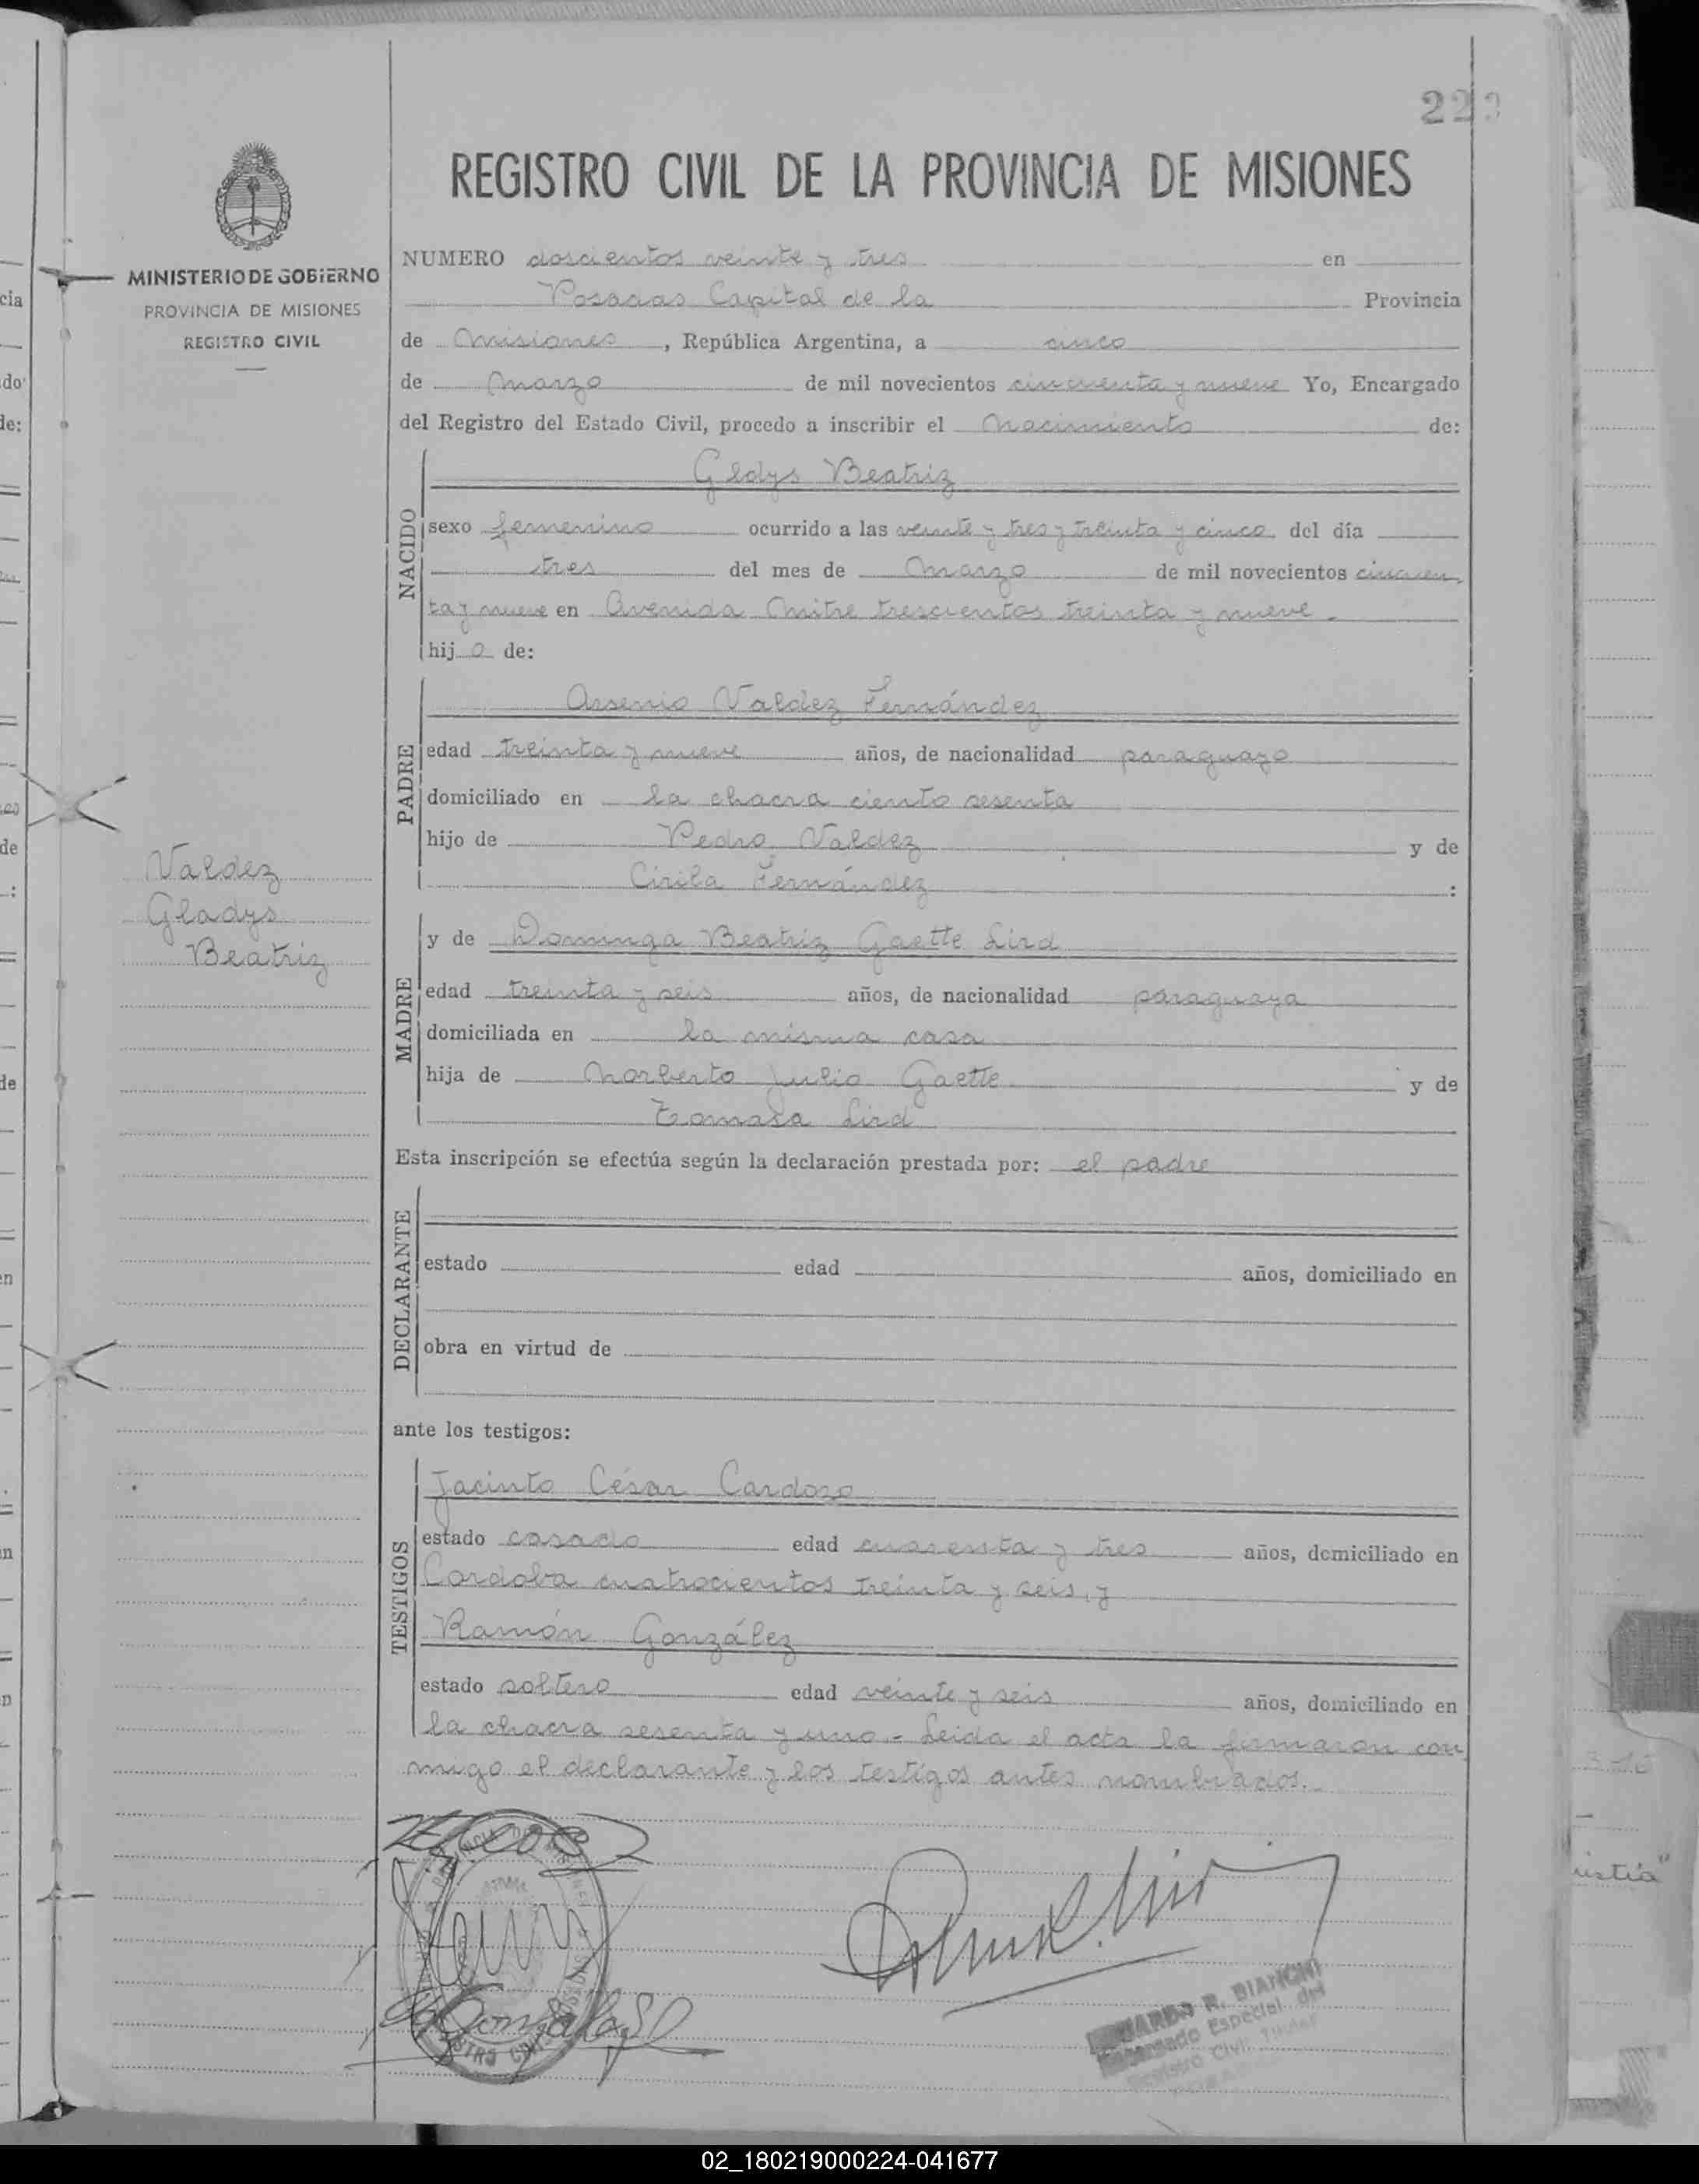 223
REGISTRO CIVIL DE LA PROVINCIA DE MISIONES
MINISTERIO DE GOBIERNO
PROVINCIA DE MISIONES
REGISTRO CIVIL
NUMERO doscientos veinte y tres en
Posadas Capital de la Provincia
de Misiones, República Argentina, a cinco
de Marzo de mil novecientos cincuenta y nueve Yo, Encargado
del Registro del Estado Civil, procedo a inscribir el Nacimiento de:
NACIDO
Gladys Beatriz
sexo femenino ocurrido a las veinte y tres y treinta y cinco del día
tres del mes de Marzo de mil novecientos cincuen
ta y nueve en Avenida Mitre trescientos treinta y nueve.
hija de:
PADRE
Arsenio Valdez Fernández
edad treinta y nueve años, de nacionalidad paraguayo
domiciliado en la chacra ciento sesenta
hijo de Pedro Valdez y de
Cirila Fernández :
Valdez
Gladys
Beatriz
MADRE
y de Dominga Beatriz Gaette Lird
edad treinta y seis años, de nacionalidad paraguaya
domiciliada en la misma casa
hija de Norberto Julio Gaette y de
Tomasa Lird
Esta inscripción se efectúa según la declaración prestada por: el padre
DECLARANTE
estado edad años, domiciliado en
obra en virtud de
ante los testigos:
TESTIGOS
Jacinto César Cardozo
estado casado edad cuarenta y tres años, domiciliado en
Cordoba cuatrocientos treinta y seis, y
Ramón González
estado soltero edad veinte y seis años, domiciliado en
la chacra sesenta y uno.- Leida el acta la firmaron con
migo el declarante y los testigos antes nombrados.-
R. BIANCHI
Especial del
Registro Civil Titular
02_180219000224-041677